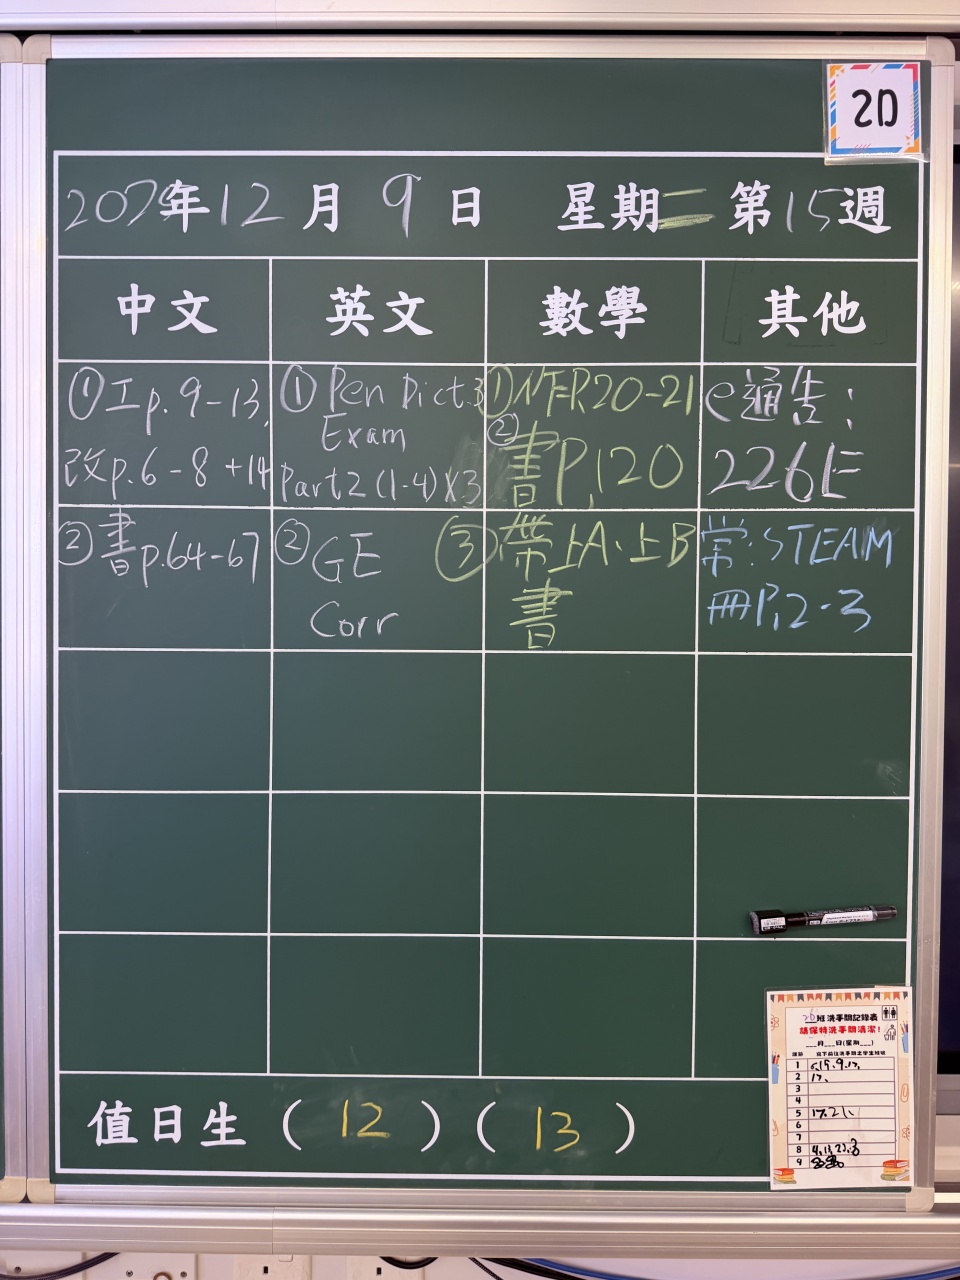 2D
2025年12月9日 星期二 第15週
中文 英文 數學 其他
①工p.9-13,
改p.6-8+14
①Pen Dict.3
Exam
Part2 (1-4)X3
①作P.20-21
②書P.120
e通告:
226E
②書p.64-67
②GE
Corr
③帶上A、上B
書
常:STEAM
冊P.2-3
值日生 (12)(13)
2D班洗手間記錄表
請保持洗手間清潔!
___月___日(星期___)
1
2 17、
3
4
5 17.21、
6
7
8
9